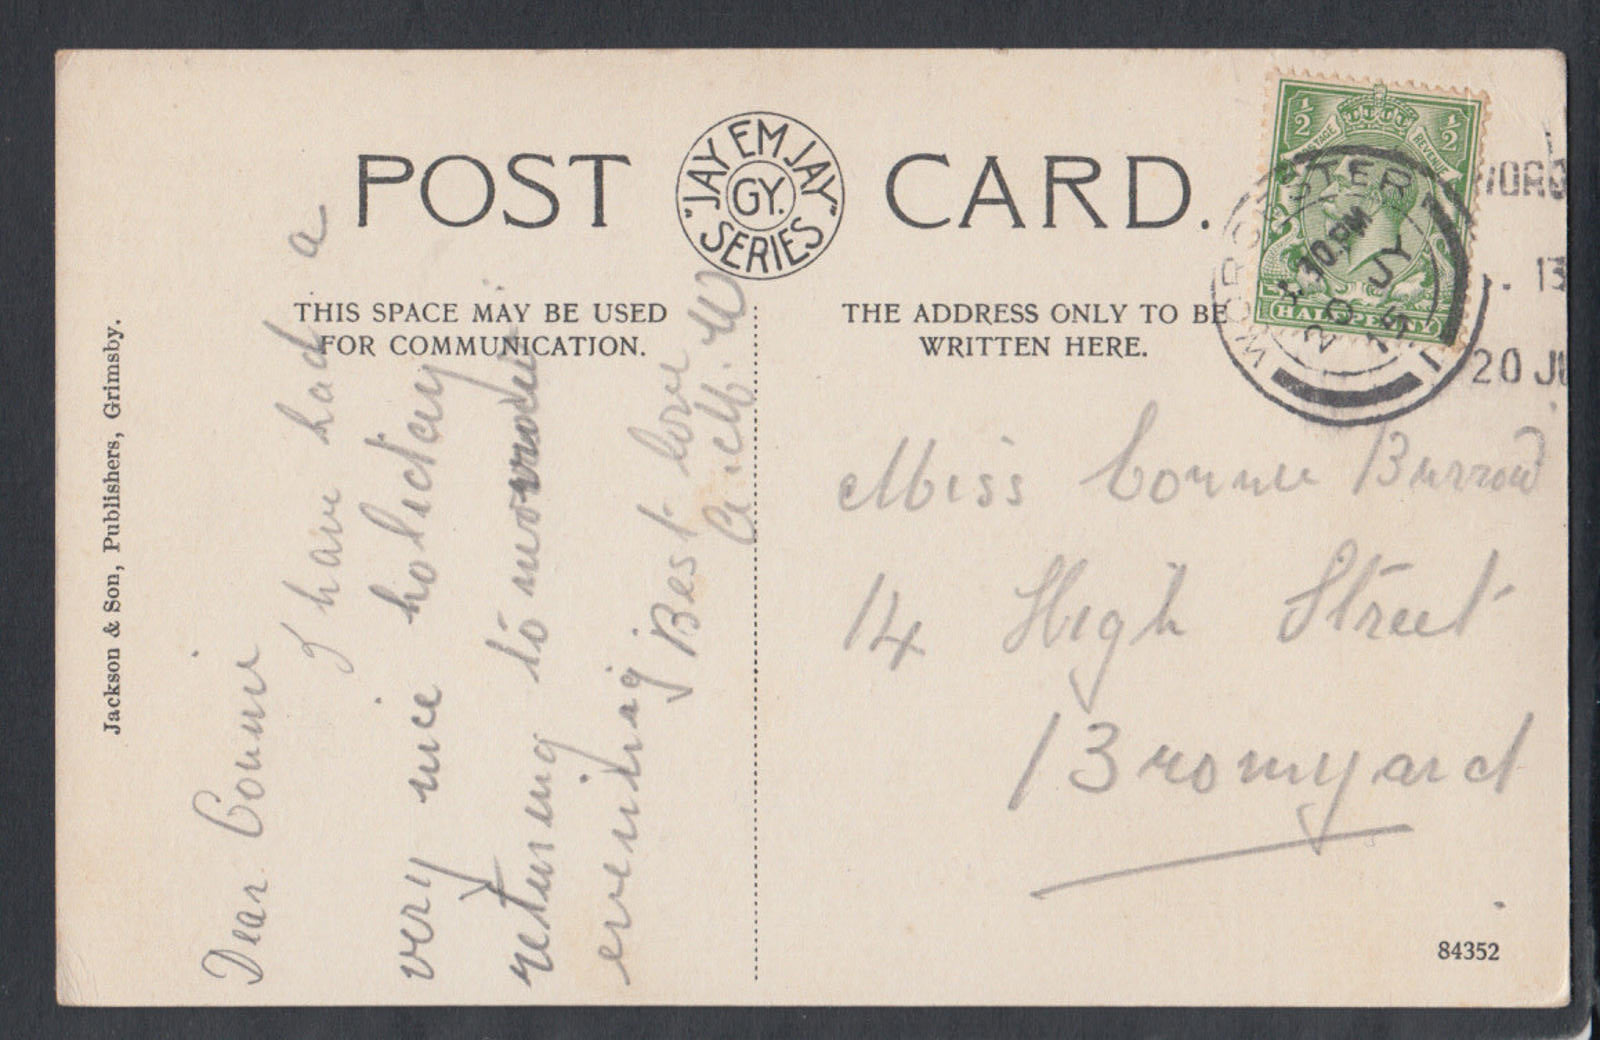 POST CARD.
"JAY EM JAY" SERIES
GY.
THIS SPACE MAY BE USED
FOR COMMUNICATION.
THE ADDRESS ONLY TO BE
WRITTEN HERE.
Jackson & Son, Publishers, Grimsby.
Dear Connie
I have had a
very nice holiday
returning to morrow
evening
Best love
Miss Connie Burrow
14 High Street
Bromyard
84352
1/2 1/2
POSTAGE REVENUE
HALFPENNY
WORCESTER
30.PM
20 JY
15
WORC
. 13
20 JU